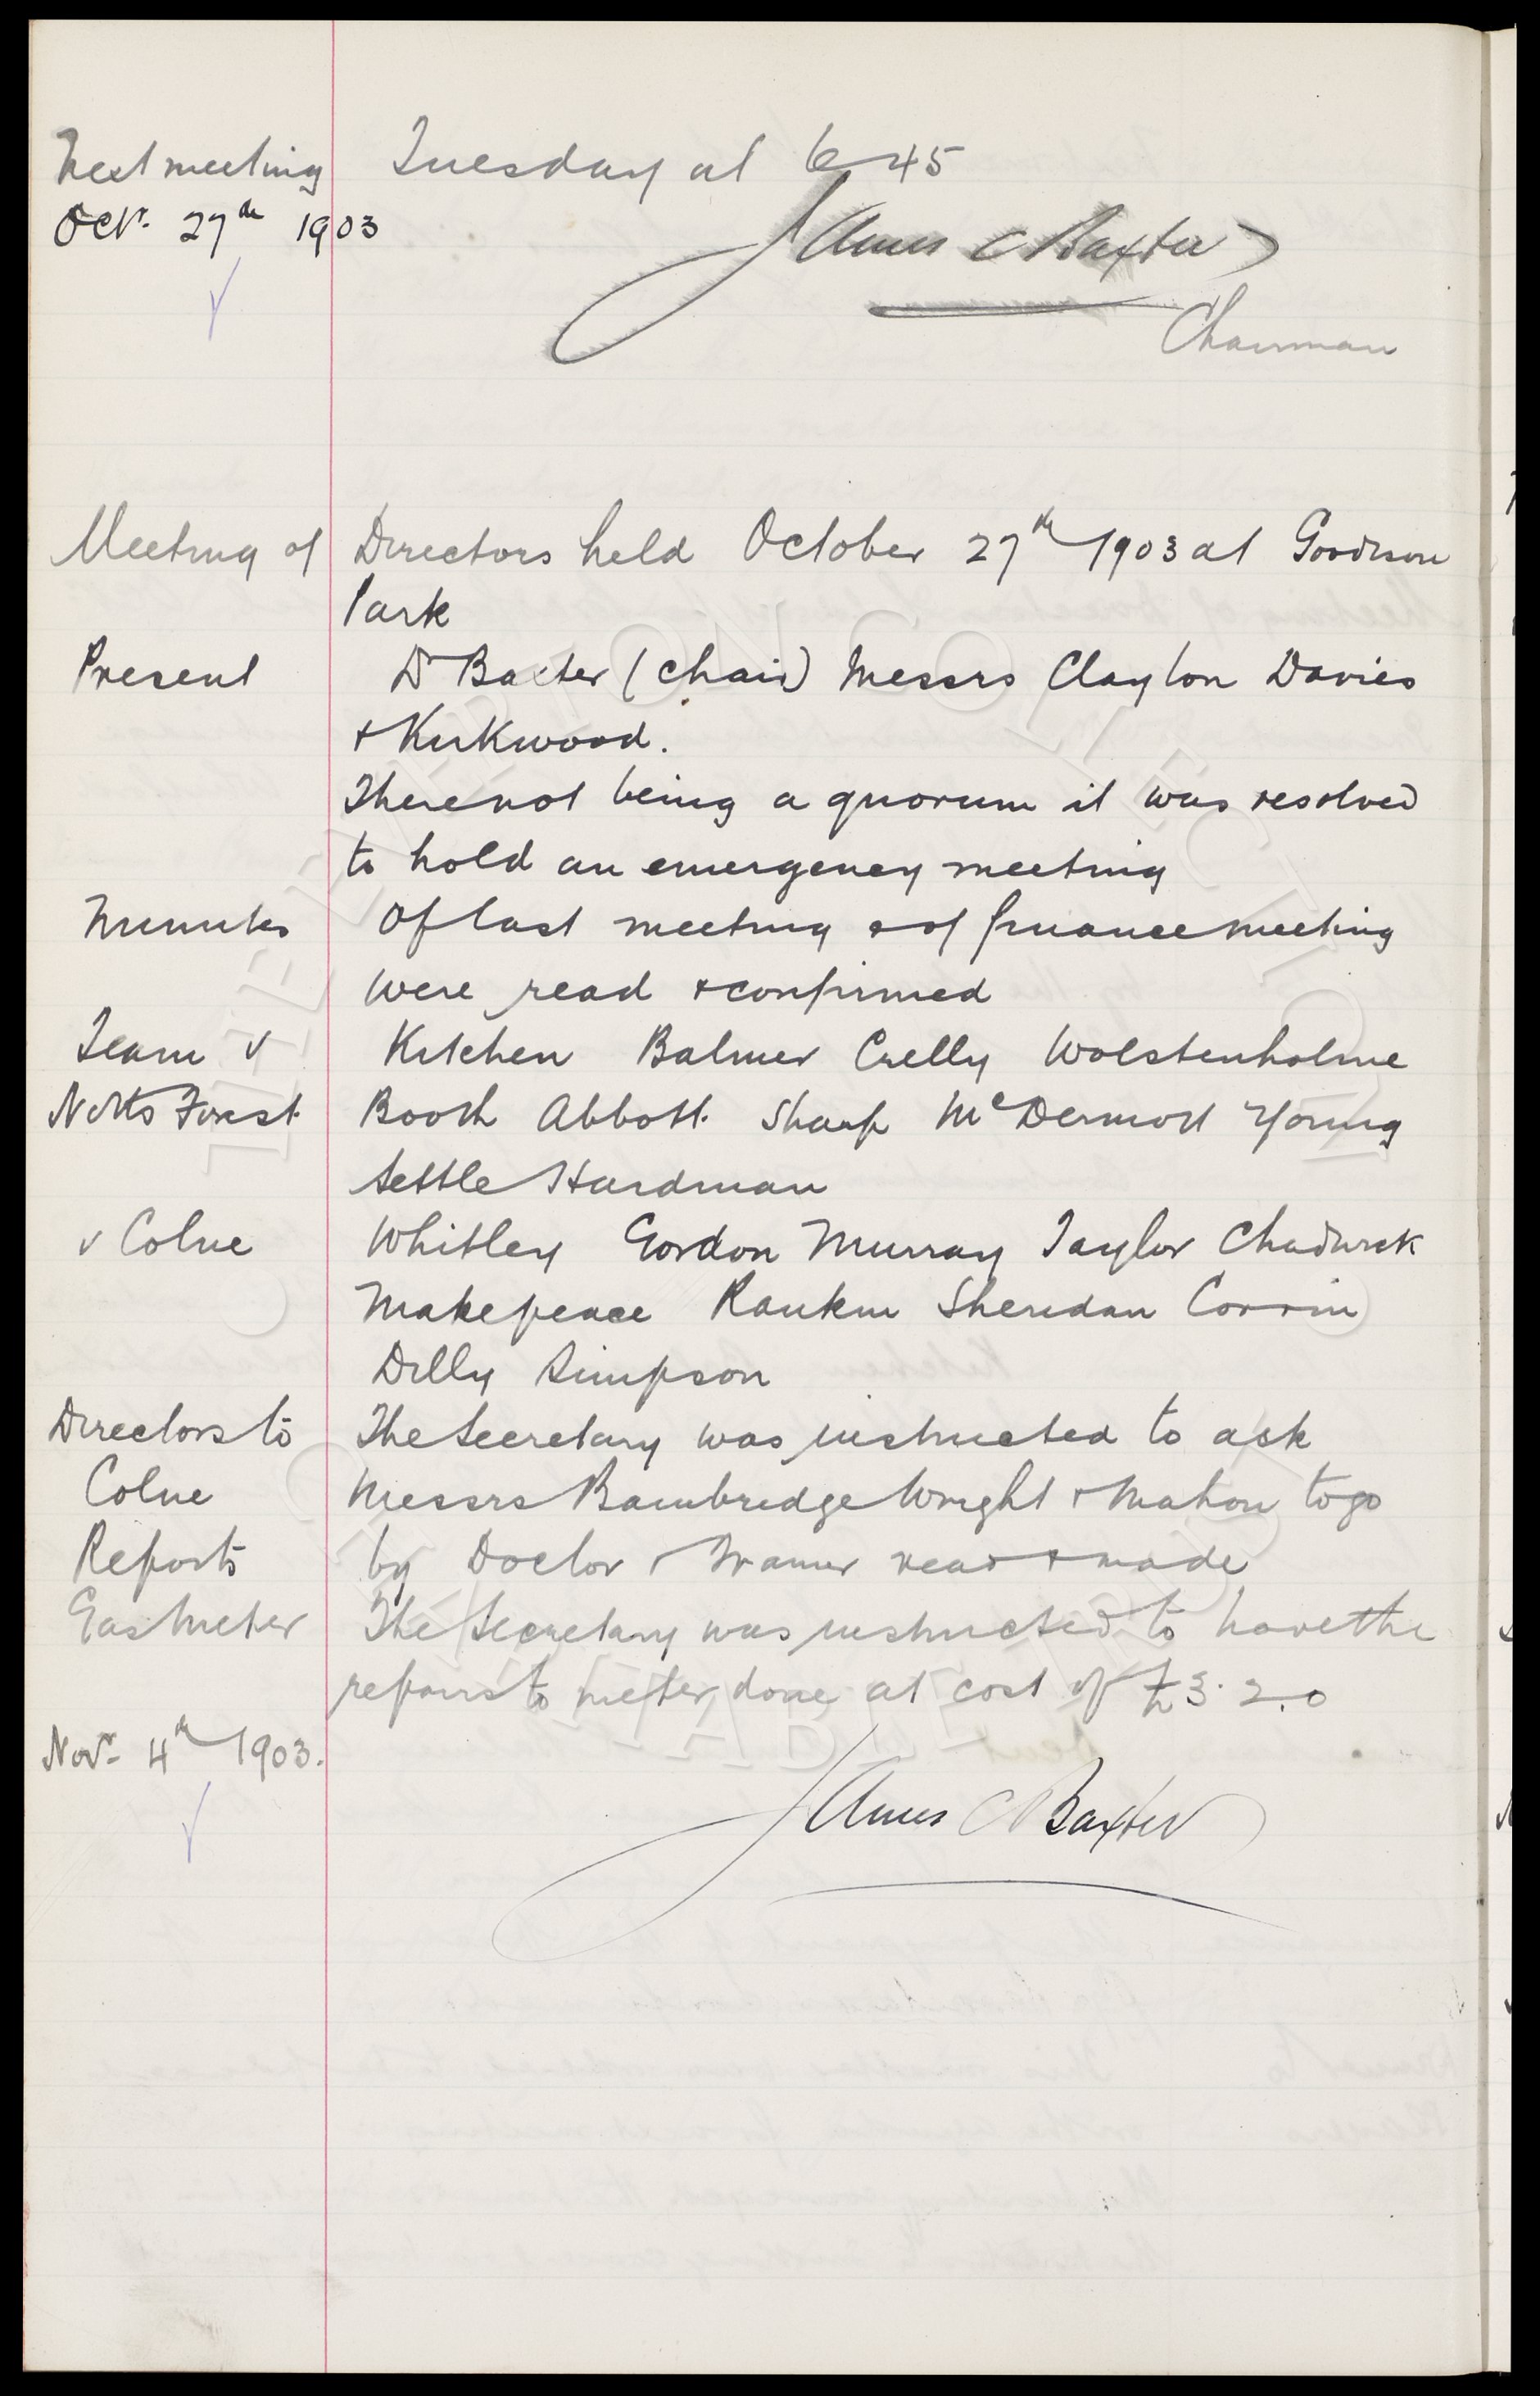 Next meeting Tuesday at 6-45
Octr. 27th 1903 James C Baxter
Chairman
Meeting of Directors held October 27th 1903 at Goodison
Park
Present Dr Baxter (chair) Messrs Clayton Davies
+ Kirkwood.
There not being a quorum it was resolved
to hold an emergency meeting
Minutes Of last meeting & of finance meeting
were read + confirmed
Team v Kitchen Balmer Crelly Wolstenholme
Notts Forest Booth Abbott Sharp McDermott Young
Settle Hardman
v Colne Whitley Gordon Murray Taylor Chadwick
Makepeace Rankin Sheridan Corrin
Dilly Simpson
Directors to The Secretary was instructed to ask
Colne Messrs Bainbridge Wright + Mahon to go
Reports by Doctor + Trainer read + made
Gas Meter The Secretary was instructed to have the
repairs to meter done at cost of £3.2.0
Novr. 4th 1903.
James C Baxter